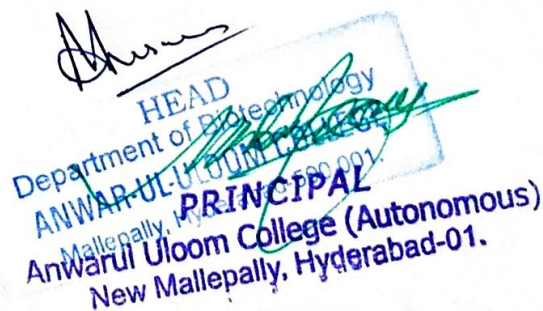 HEAD
Department of Biotechnology
ANWAR-UL-ULOOM COLLEGE
Mallepally, Hyderabad-500 001.
PRINCIPAL
Anwarul Uloom College (Autonomous)
New Mallepally, Hyderabad-01.